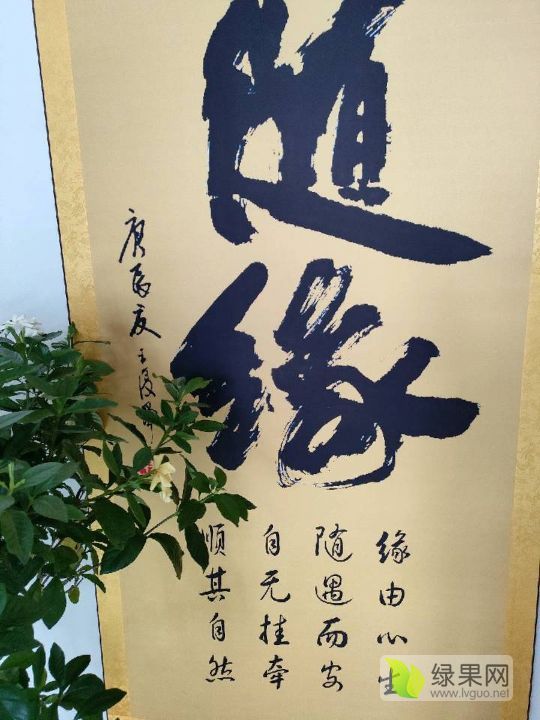 随
缘
缘由心生
随遇而安
自无挂牵
顺其自然
绿果网
www.lvguo.net